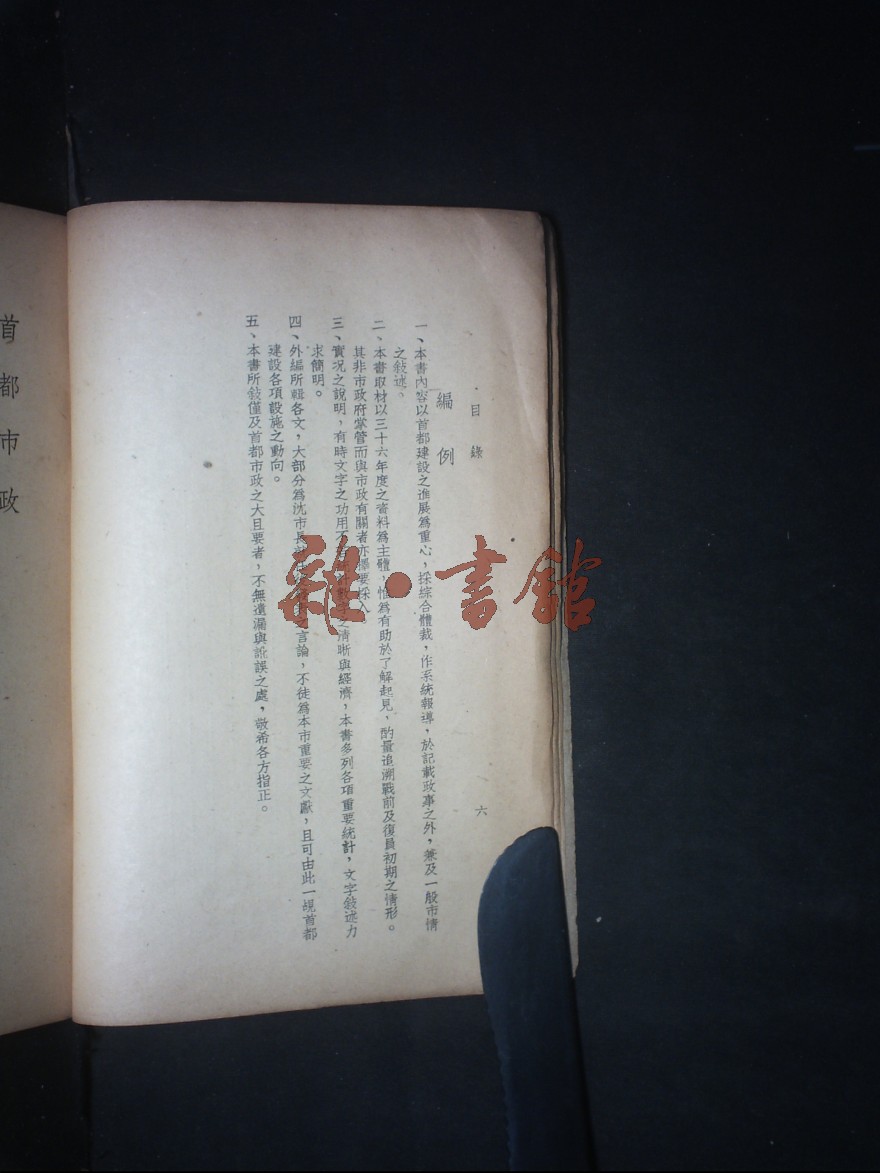 目錄
六
編例
一、本書內容以首都建設之進展為重心,採綜合體裁,作系統報導,於記載政事之外,兼及一般市情
之敍述。
二、本書取材以三十六年度之資料為主體,惟為有助於了解起見,酌量追溯戰前及復員初期之情形。
其非市政府掌管而與市政有關者亦擇要採入。
三、實況之說明,有時文字之功用不數字之清晰與經濟,本書多列各項重要統計,文字敍述力
求簡明。
四、外編所輯各文,大部分為沈市長之言論,不徒為本市重要之文獻,且可由此一覘首都
建設各項設施之動向。
五、本書所敍僅及首都市政之大且要者,不無遺漏與訛誤之處,敬希各方指正。
首都市政
雜·書館